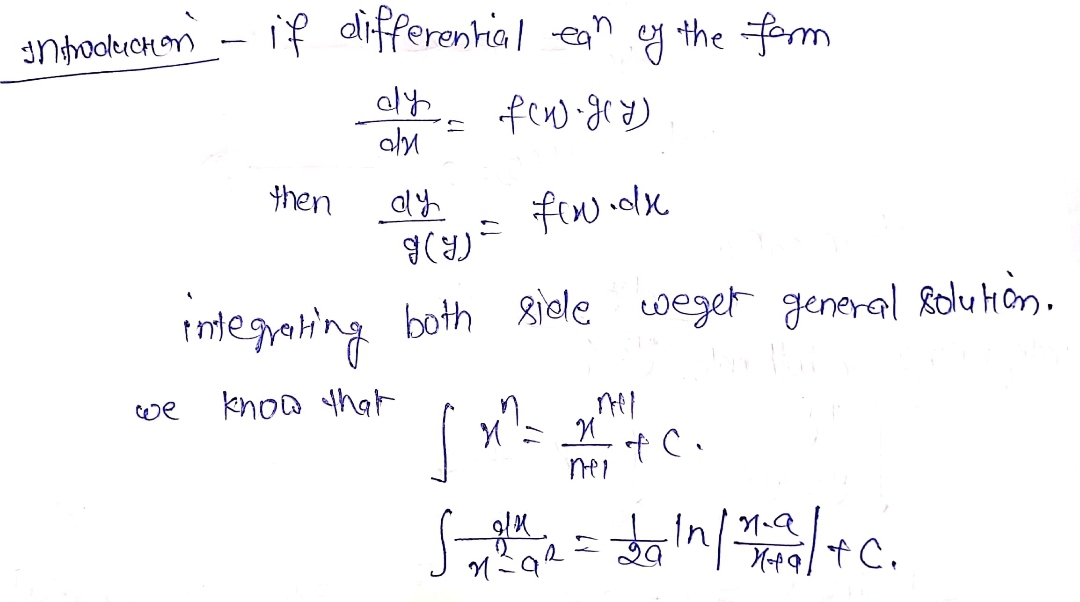 Introduction - if differential eqn of the form
dy/dx = f(x)·g(y)
then dy/g(y) = f(x)·dx
integrating both side weget general solution.
we know that ∫ x^n = x^(n+1)/(n+1) + C.
∫ dx/(x²-a²) = 1/2a ln|x-a/x+a| + C.